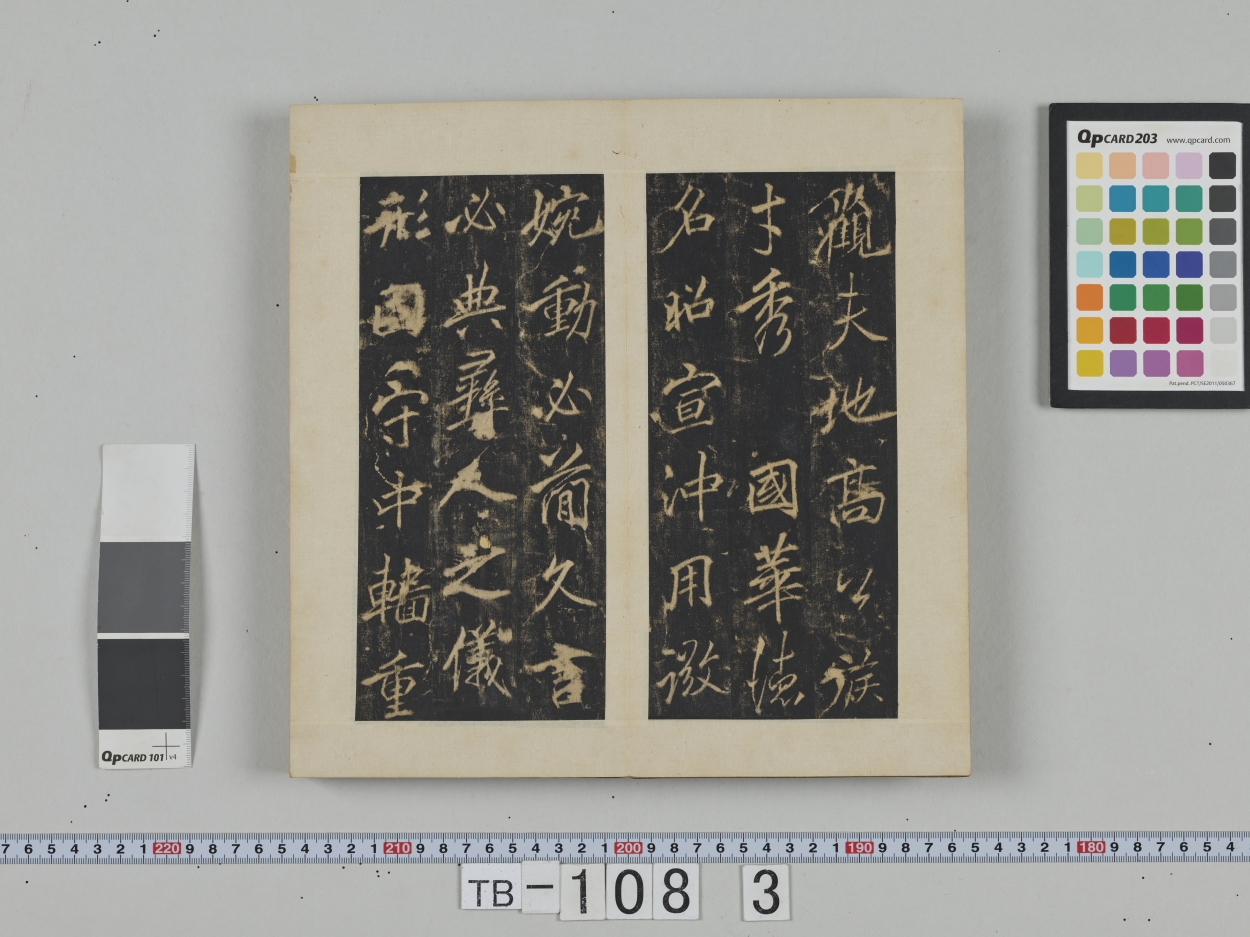 觀夫地高公族
才秀國華德
名昭宣沖用微
婉動必簡久言
必典彝人之儀
形國守中軸重
QPCARD 203 www.qpcard.com
Pat.pend. PCT/SE2011/050367
QPCARD 101 v4
7 6 5 4 3 2 1 220 9 8 7 6 5 4 3 2 1 210 9 8 7 6 5 4 3 2 1 200 9 8 7 6 5 4 3 2 1 190 9 8 7 6 5 4 3 2 1 180 9 8 7 6 5 4
TB-108 3